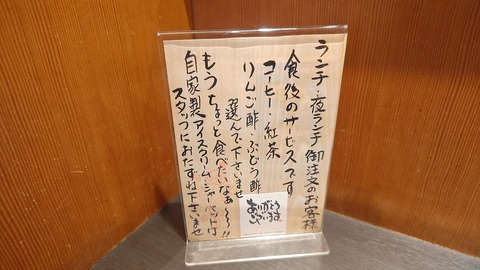 ランチ・夜ランチ御注文のお客様
食後のサービスです
コーヒー・紅茶
りんご酢・ぶどう酢
選んで下さいませ
もうちょっと食べたいなぁ～～!!
自家製アイスクリーム・シャーベットは
スタッフにおたずね下さいませ
ありがとう
ございます